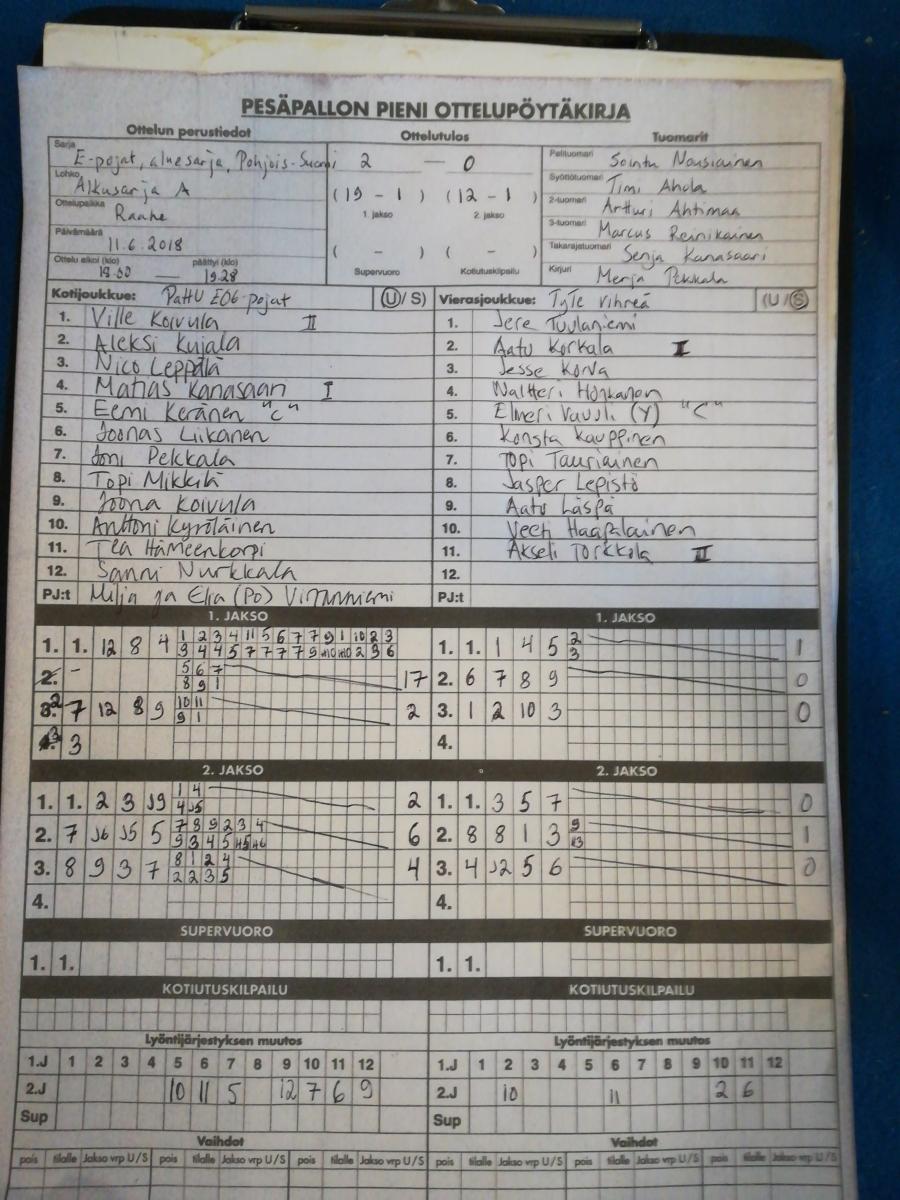 PESÄPALLON PIENI OTTELUPÖYTÄKIRJA
Ottelun perustiedot Ottelutulos Tuomarit
Sarja E-pojat, aluesarja, Pohjois-Suomi 2 — 0 Pelituomari Sointu Nousiainen
Lohko Alkusarja A (19 - 1) (12 - 1) Syöttötuomari Timi Ahola
Ottelupaikka Raahe 1. jakso 2. jakso 2-tuomari Artturi Ahtimaa
Päivämäärä 11.6.2018 ( - ) ( - ) 3-tuomari Marcus Reinikainen
Takarajatuomari Senja Kanasaari
Ottelu alkoi (klo) päättyi (klo) 19.28 Supervuoro Kotiutuskilpailu Kirjuri Merja Pekkala
Kotijoukkue: PattU E06-pojat (U/S) Vierasjoukkue: TyTe vihreä (U/S)
1. Ville Koivula II 1. Jere Tuulaniemi
2. Aleksi Kujala 2. Aatu Korkala I
3. Nico Leppälä 3. Jesse Korva
4. Matias Kanasaari I 4. Waltteri Honkanen
5. Eemi Keränen "C" 5. Elmeri (Y) "C"
6. Joonas Liikanen 6. Konsta Kauppinen
7. Joni Pekkala 7. Topi Tauriainen
8. Topi Mikkilä 8. Jasper Lepistö
9. Joona Koivula 9. Aatu Läspä
10. Anttoni Kyröläinen 10. Veeti Haapalainen
11. Tea Hämeenkorpi 11. Akseli Torkkola II
12. Sanni Nurkkala 12.
PJ:t Milja ja Elia (PO) PJ:t
1. JAKSO 1. JAKSO
1. 1. 12 8 4 1 2 3 4 11 5 6 7 7 9 1 10 2 3 1. 1. 1 4 5 2 1
3 4 4 5 7 7 7 7 9 2 3 6 3
2. - 5 6 7 17 2. 6 7 8 9 0
8 9 1
2 7 12 8 9 10 11 2 3. 1 2 10 3 0
9 1
3 3 4.
2. JAKSO 2. JAKSO
1. 1. 2 3 J9 1 4 2 1. 1. 3 5 7 0
4 J5
2. 7 J6 J5 5 7 8 9 2 3 4 6 2. 8 8 1 3 9 1
9 3 4 5
3. 8 9 3 7 8 1 2 4 4 3. 4 J2 5 6 0
2 2 3 5
4. 4.
SUPERVUORO SUPERVUORO
1. 1. 1. 1.
KOTIUTUSKILPAILU KOTIUTUSKILPAILU
Lyöntijärjestyksen muutos Lyöntijärjestyksen muutos
1.J 1 2 3 4 5 6 7 8 9 10 11 12 1.J 1 2 3 4 5 6 7 8 9 10 11 12
2.J 10 11 5 12 7 6 9 2.J 10 11 2 6
Sup Sup
Vaihdot Vaihdot
pois tilalle Jakso vrp U/S pois tilalle Jakso vrp U/S pois tilalle Jakso vrp U/S pois tilalle Jakso vrp U/S pois tilalle Jakso vrp U/S pois tilalle Jakso vrp U/S